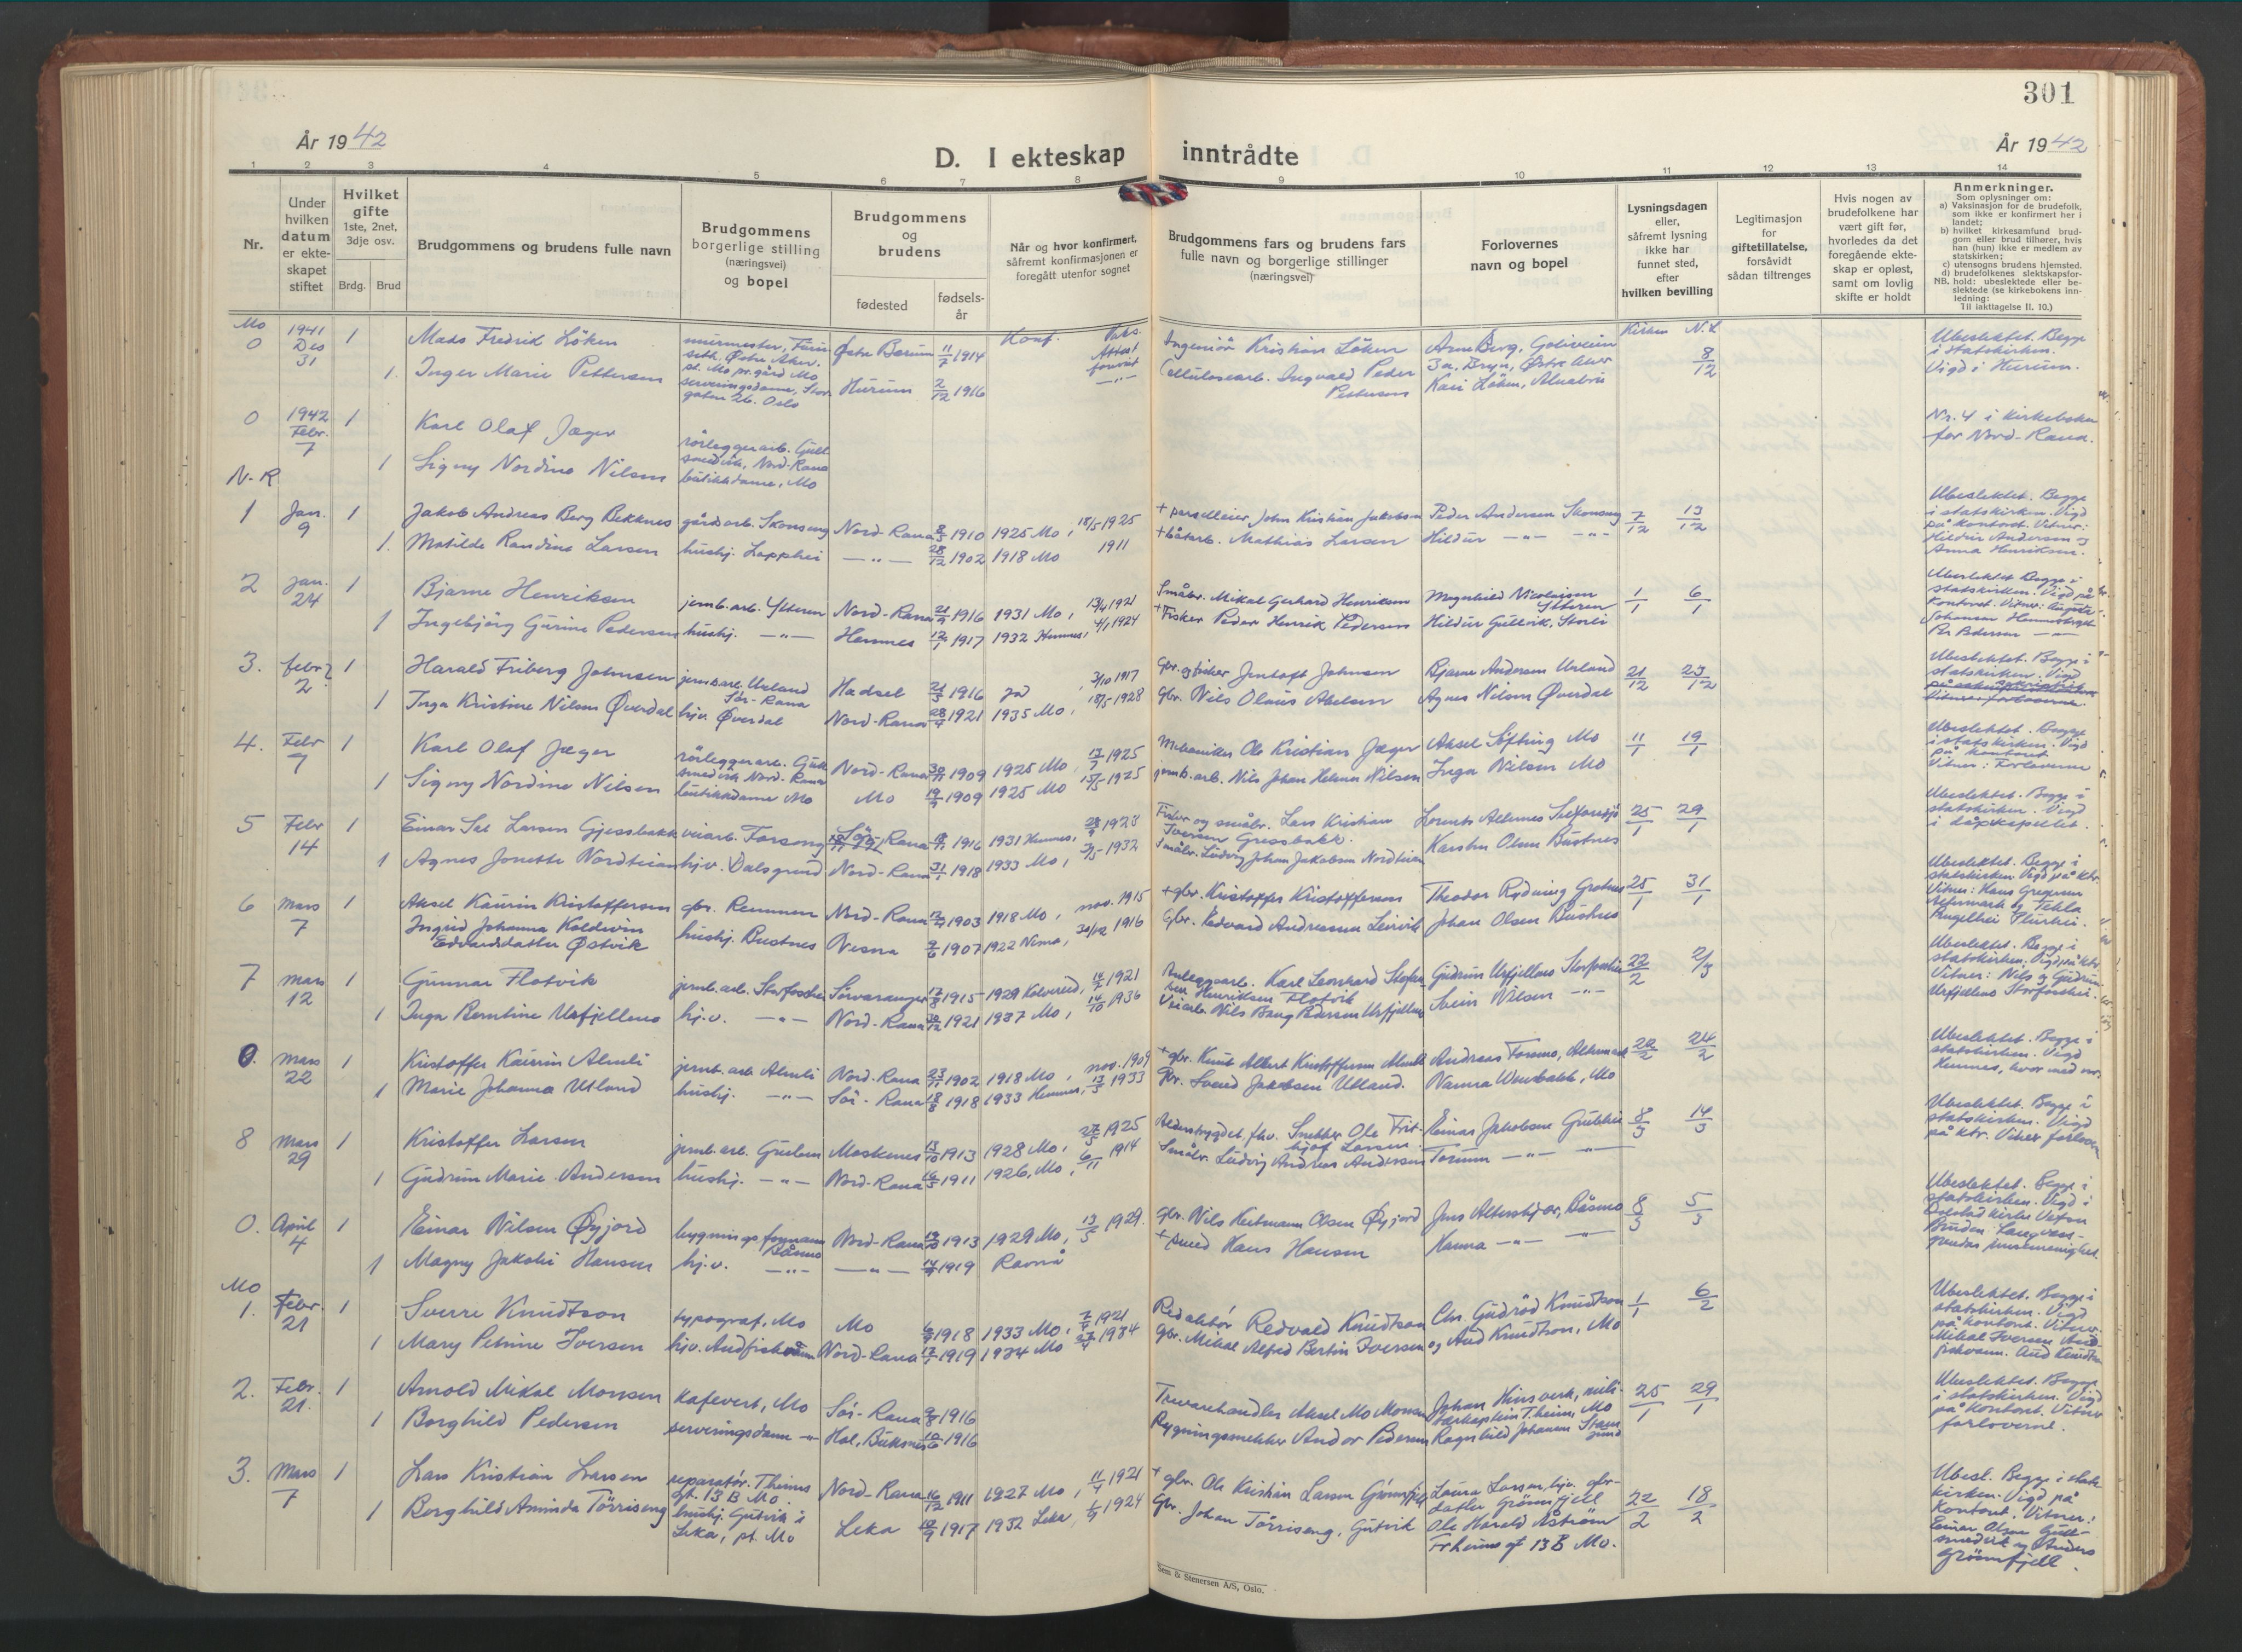 301
År 1942
D. I ekteskap inntrådte
År 1942
1 2 3 4 5 6 7 8 9 10 11 12 13 14
Nr.
Under hvilken datum er ekteskapet stiftet
Hvilket gifte 1ste, 2net, 3dje osv.
Brdg. Brud
Brudgommens og brudens fulle navn
Brudgommens borgerlige stilling (næringsvei) og bopel
Brudgommens og brudens
fødested
fødselsår
Når og hvor konfirmert, såfremt konfirmasjonen er foregått utenfor sognet
Brudgommens fars og brudens fars fulle navn og borgerlige stillinger (næringsvei)
Forlovernes navn og bopel
Lysningsdagen eller, såfremt lysning ikke har funnet sted, efter hvilken bevilling
Legitimasjon for giftetillatelse, forsåvidt sådan tiltrenges
Hvis nogen av brudefolkene har vært gift før, hvorledes da det foregående ekteskap er opløst, samt om lovlig skifte er holdt
Anmerkninger.
Som oplysninger om:
a) Vaksinasjon for de brudefolk, som ikke er konfirmert her i landet;
b) hvilket kirkesamfund brudgom eller brud tilhører, hvis han (hun) ikke er medlem av statskirken;
c) utensogns brudens hjemsted.
d) brudefolkenes slektskapsforhold: ubeslektede eller beslektede (se kirkebokens innledning:
NB.
Til iakttagelse II. 10.)
Mo
0 1941 Des 31 1 Mads Fredrik Löken Østre Bærum 11/7 1914 Konf. Vaks. Attest Ingeniör Kristian Löken Arne Berg Kirken N.L. 8/12 Ubeslektet. Begge i statskirken. Vigd i Hurum.
1. Inger Marie Pettersen serveringsdame, Storgaten 26. Oslo Hurum 2/12 1916 Cellulosearb. Ingvald Peder Pettersen Kari Löken, Alnabru
0 1942 Febr. 7 1 Karl Olaf Jæger rörleggerarb. Gullsmedvik, Nord-Rana Nr. 4 i kirkeboken for Nord-Rana.
1 Signy Nordine Nilsen butikkdame, Mo
N-R
1 Jan. 9 1 Jakob Andreas Berg Bekknes gårdsarb. Skonseng Nord-Rana 8/5 1910 1925 Mo, 18/5 1925 + parselleier John Kristian Jakobsen Peder Andersen Skonseng 7/12 13/12 Ubeslektet. Begge i statskirken. Vigd på kontoret. Vitner: Hildur Andersen og Anna Henriksen.
1. Matilde Randine Larsen hushj. Lapphei — " — 28/12 1902 1918 Mo 1911 + båtarb. Mathias Larsen Hildur — " — — " —
2 Jan. 24 1 Bjarne Henriksen jernb.arb. Ytteren Nord-Rana 21/9 1916 1931 Mo, 13/4 1921 Småbr. Mikal Gerhard Henriksen Magnhild Nicolaisen Ytteren 1/1 6/1 Ubeslektet Begge i statskirken. Vigd på kontoret. Vitner:
1 Ingebjörg Gurine Pedersen hushj. — " — Hemnes 12/1 1917 1932 Hemnes, 4/1 1924 + Fisker Peder Henrik Pedersen Hildur Gullvik, Storli
3. febr 2 1 Harald Friberg Johnsen jernb.arb. Utland Sör-Rana Hadsel 21/3 1916 ja, 3/10 1917 Gbr. og fisker Jentoft Johnsen Bjarne Andersen Utland 21/12 23/12 Ubeslektet. Begge i statskirken. Vigd
1 Inga Kristine Nilsen Överdal hjv. Överdal Nord-Rana 28/9 1921 1935 Mo, 18/5 1928 Gbr. Nils Olaus Agnes Nilsen Överdal
4. Febr 7 1 Karl Olaf Jæger rörleggerarb. Gullsmedvik Nord-Rana Nord-Rana 30/11 1909 1925 Mo, 17/7 1925 Mekaniker Ole Kristian Jæger Aksel Söfting Mo 11/1 19/1 Ubeslektet. Begge i statskirken. Vigd på kontoret Vitner: Forloverne
1 Signy Nordine Nilsen butikkdame Mo Mo 19/9 1909 1925 Mo 15/5 1925 jernb.arb. Nils Johan Helmer Nilsen Inga Nilsen Mo
5 Febr 14 1 Einar Larsen Gjessbakk veiarb. Forsong Sör-Rana 1916 1931 Hemnes, 28/9 1923 Fisker og småbr. Lars Kristian Iversen 25/1 29/1 Ubeslektet. Begge i statskirken. Vigd i dåpskapellet.
1 Agnes Jonette Nordteien hjv. Dalsgrund Nord-Rana 31/1 1918 1933 Mo, 3/5 1932 Småbr. Ludvig Johan Jakobsen Nordteien Karsten Olsen Bustnes
6 Mars 7 1 Aksel Kaurin Kristoffersen gbr. Nord-Rana 1903 1918 Mo, nov. 1915 + gbr. Kristoffer Kristoffersen Theodor Ryduing 25/1 31/1 Ubeslektet. Begge i statskirken. Vigd på ktr. Vitner:
Ingrid Johanna Edvardsdatter Östvik hushj. Bustnes Nesna 9/6 1907 1922 Nesna, 30/12 1916 Johan Olsen Bustnes
7 Mars 12 1 Gunnar Flotvik jernb.arb. Storforshei Sörvaranger 17/8 1915 1929 Kolvereid, 14/2 1921 Karl Leonhard Henriksen Flotvik Gudrun Urfjellmo Storforshei 22/2 2/3 Ubeslektet. Begge i statskirken. Vigd på ktr. Vitner: Nils og Gudrun Urfjellmo Storforshei.
1 Inga Berntine Urfjellmo hj.v. — " — Nord-Rana 1921 1937 Mo, 14/10 1936 Veiarb. Nils Bang Pedersen Urfjellmo Svein Nilsen — " —
0. Mars 22 1 Kristoffer Kaurin Almli jernb.arb Almli Nord-Rana 23/11 1902 1918 Mo, nov. 1909 + gbr. Knut Albert Kristoffersen Almli Andreas 22/2 24/2 Ubeslektet. Begge i statskirken. Vigd Hemnes,
1 Marie Johanna Utland hushj. — " — Sör-Rana 18/8 1918 1933 Hemnes, 13/5 1933 Gbr. Svend Jakobsen Utland.
8 Mars 29 1 Kristoffer Larsen jernb.arb. Moskenes 13/10 1913 1928 Mo, 27/5 1925 Snekker Ole Fritjof Larsen Einar Jakobsen 8/3 14/3 Ubeslektet. Begge i statskirken. Vigd på ktr.
1 Gudrun Marie Andersen hushj. — " — Nord-Rana 16/5 1911 1926, Mo, 6/11 1914 Småbr. Ludvig Andreas Andersen Torunn — " —
0. April 4 1 Einar Nilsen Öyjord bygningsformann Råsmo Nord-Rana 1913 1929 Mo, 13/5 1929. gbr. Nils Hertmann Olsen Öyjord Jens Altershjær, Råsmo 8/3 5/3 Ubeslektet. Begge i statskirken. Vigd i Dolstad kirke Vefsn
1 Magny Jakobi Hansen hj.v. — " — — " — 14/9 1919 + smed Hans Hansen Hanna — " —
Mo
1. Febr. 21 1 Sverre Knudtson typograf, Mo Mo 1918 1933 Mo, 7/7 1921 Redaktör Redvald Knudtson Chr. Gudröd Knudtson 1/1 6/2 Ubeslektet. Begge i statskirken. Vigd på kontoret. Vitner: Mikal Iversen Aud Knudtson
1 Mary Petrine Iversen hjv. Nord-Rana 1919 1934 Mo 1934 gbr. Mikal Alfred Bertin Iversen og Aud Knudtson, Mo
2. Febr. 21. 1 Arnold Mikal Monsen kafevert, Mo Sör-Rana 9/8 1916 Trevarehandler Aksel Mo Monsen Johan 25/1 29/1 Ubeslektet. Begge i statskirken. Vigd på kontoret. Vitner forloverne.
1 Borghild Pedersen serveringsdame — " — Hol, Buksnes 10/6 1916 Bygningssnekker Andor Pedersen Ragnhild Johansen
3. Mars 7 1 Lars Kristian Larsen reparatör. gt. 13 B Mo. Nord-Rana 16/12 1911 1927 Mo, 11/4 1921 + gbr. Ole Kristian Larsen Grönnfjell Laura Larsen, hjv. gbr-datter Grönnfjell 22/2 18/2 Ubesl. Begge i statskirken. Vigd på kontoret. Vitner: Einar Olsen Gullsmedvik og Anders Grönnfjell.
1 Borghild Aminda Törriseng hushj. Gutvik i Leka, pt. Mo Leka 10/9 1917 1932 Leka, 1/9 1924 Gbr. Johan Törriseng, Gutvik Ole Harald Åström gt 13 B Mo.
Sem & Stenersen A/S, Oslo.